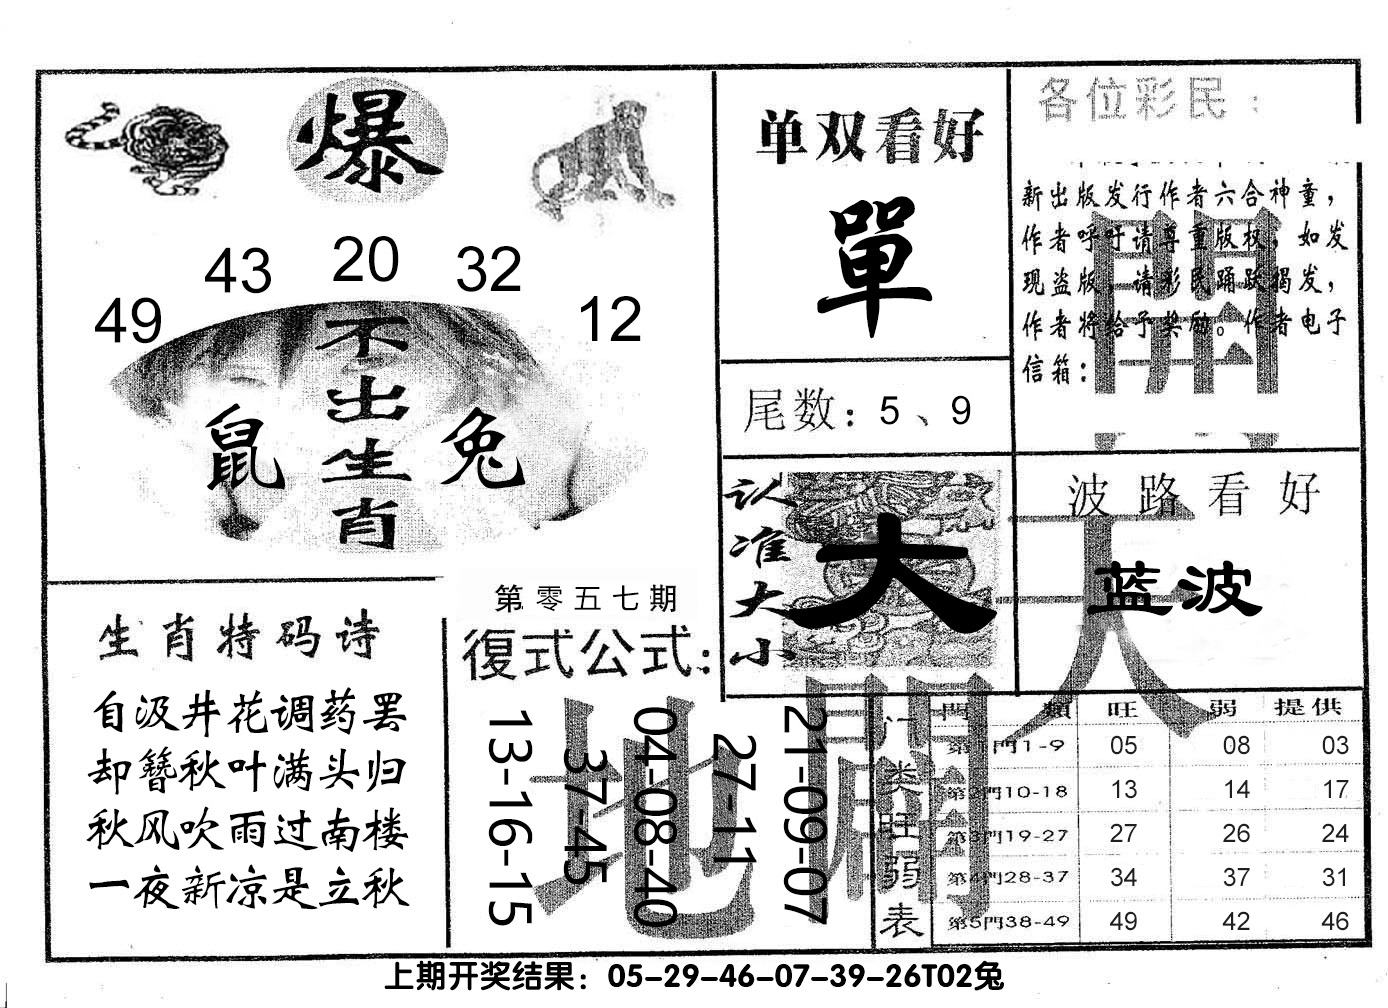 爆
43 20 32
49 12
不出生肖
鼠 兔
单双看好
單
尾数：5、9
各位彩民：
新出版发行作者六合神童，
作者呼吁请尊重版权，如发
现盗版，请彩民踊跃揭发，
作者将给予奖励。作者电子
信箱：
認准大小
大
波路看好
蓝波
生肖特码诗
自汲井花调药罢
却簪秋叶满头归
秋风吹雨过南楼
一夜新凉是立秋
第零五七期
復式公式：
13-16-15
37-45
04-08-40
27-11
21-09-07
天
地
開
開
门类旺弱表
門類 旺 弱 提供
第1門1-9 05 08 03
第2門10-18 13 14 17
第3門19-27 27 26 24
第4門28-37 34 37 31
第5門38-49 49 42 46
上期开奖结果：05-29-46-07-39-26T02兔